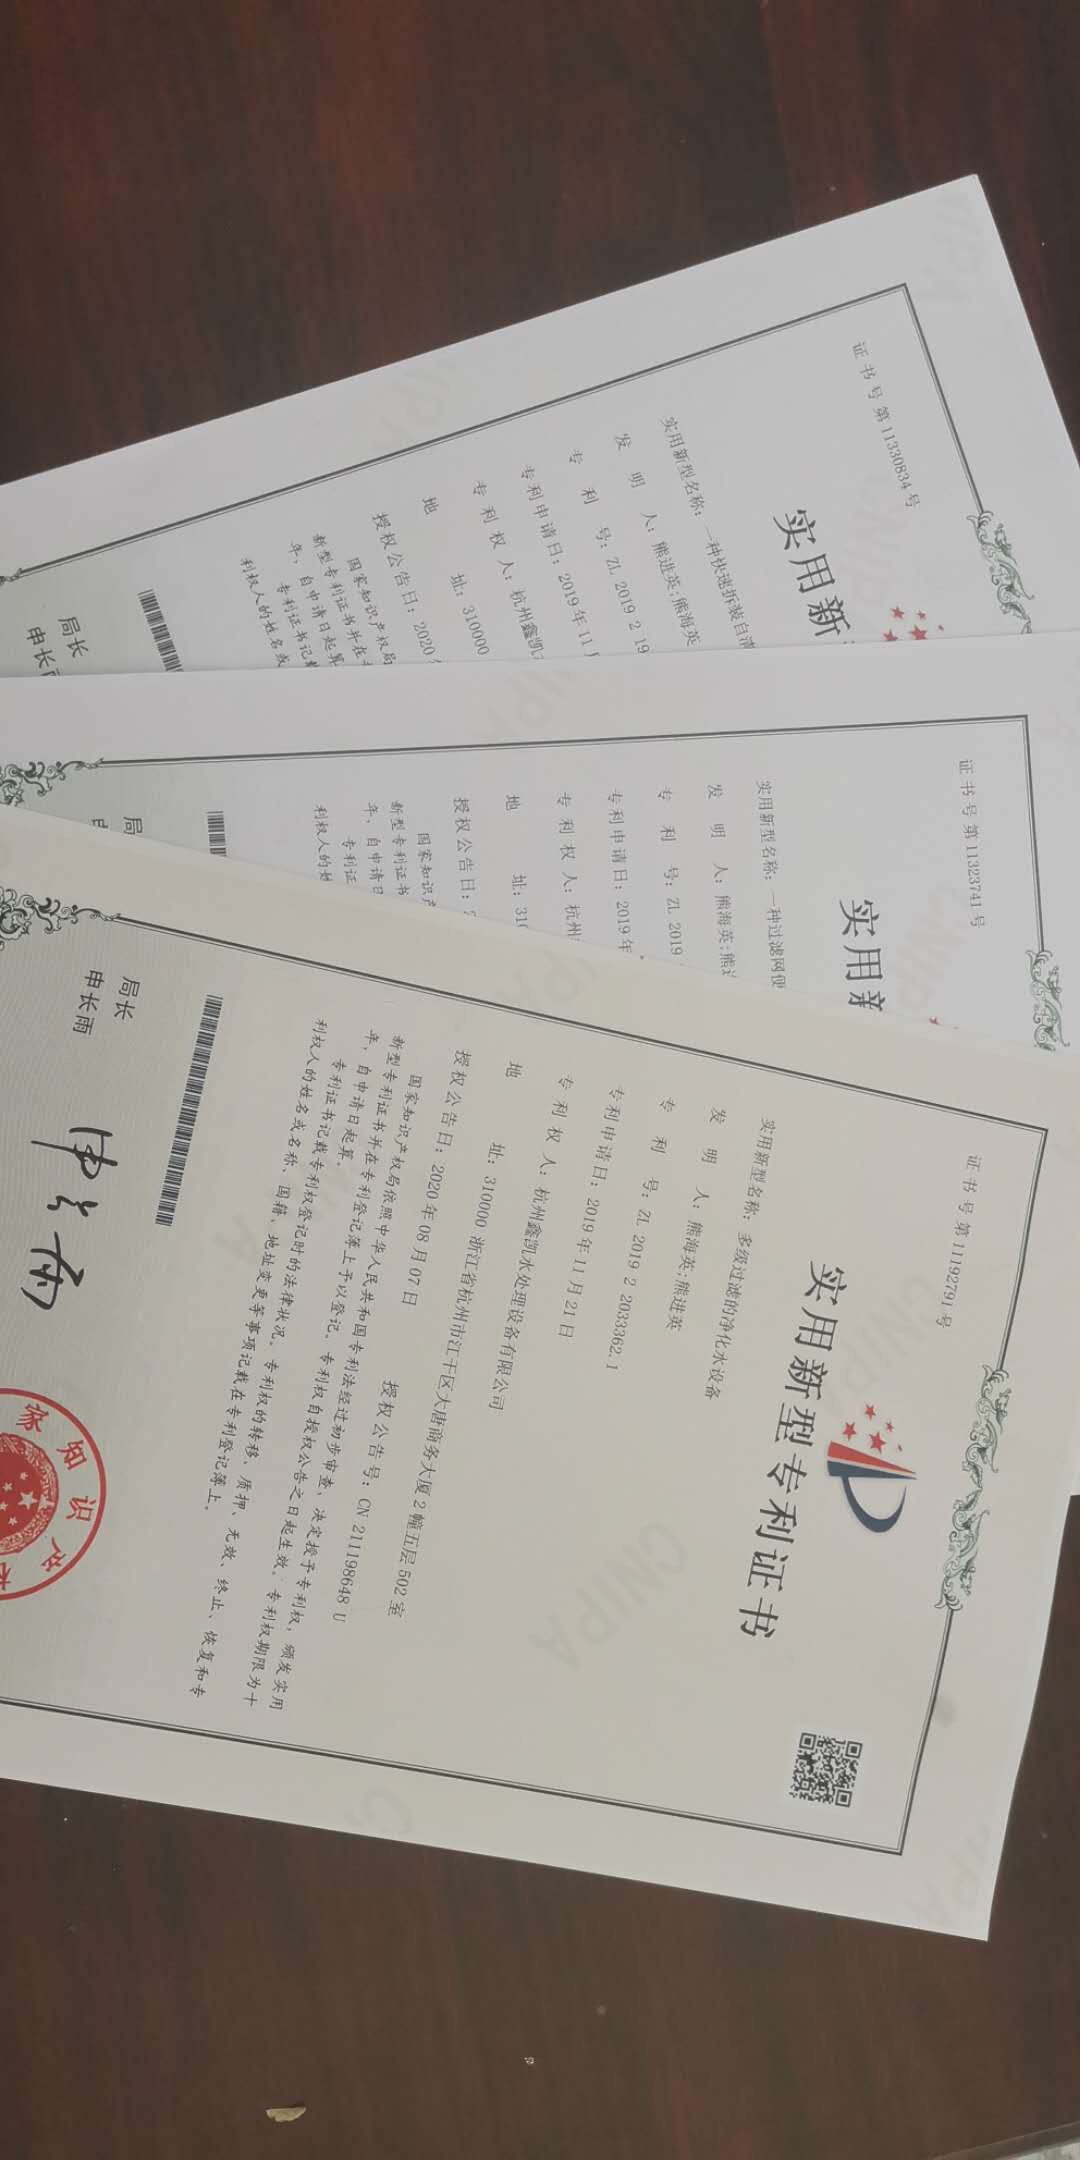 证书号第11330834号
实用新
实用新型名称：一种快速拆装自清
发明人：熊进英;熊海英
专利号：ZL 2019 2 19
专利申请日：2019年11
专利权人：杭州鑫凯
地址：310000
授权公告日：2020
国家知识产权局
新型专利证书并在
年，自申请日起算
专利证书记载
利权人的姓名或
局长
申长雨
证书号第11323741号
实用新
实用新型名称：一种过滤网便
发明人：熊海英;熊进
专利号：ZL 2019
专利申请日：2019年
专利权人：杭州
地址：310
授权公告日：
国家知识产
新型专利证书
年，自申请日
专利证
利权人的姓
局
证书号第11192791号
实用新型专利证书
实用新型名称：多级过滤的净化水设备
发明人：熊海英;熊进英
专利号：ZL 2019 2 2033362.1
专利申请日：2019年11月21日
专利权人：杭州鑫凯水处理设备有限公司
地址：310000 浙江省杭州市江干区大唐商务大厦2幢五层502室
授权公告日：2020年08月07日 授权公告号：CN 211198648 U
国家知识产权局依照中华人民共和国专利法经过初步审查，决定授予专利权，颁发实用
新型专利证书并在专利登记簿上予以登记。专利权自授权公告之日起生效。专利权期限为十
年，自申请日起算。
专利证书记载专利权登记时的法律状况。专利权的转移、质押、无效、终止、恢复和专
利权人的姓名或名称、国籍、地址变更等事项记载在专利登记簿上。
局长
申长雨
申长雨
家知识产权
CNIPA